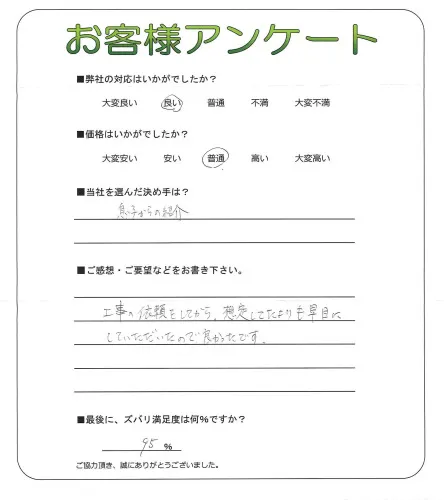 お客様アンケート
■弊社の対応はいかがでしたか？
大変良い 良い 普通 不満 大変不満
■価格はいかがでしたか？
大変安い 安い 普通 高い 大変高い
■当社を選んだ決め手は？
息子からの紹介
■ご感想・ご要望などをお書き下さい。
工事の依頼をしてから、想定してたよりも早目に
していただいたので良かったです。
■最後に、ズバリ満足度は何％ですか？
95 %
ご協力頂き、誠にありがとうございました。